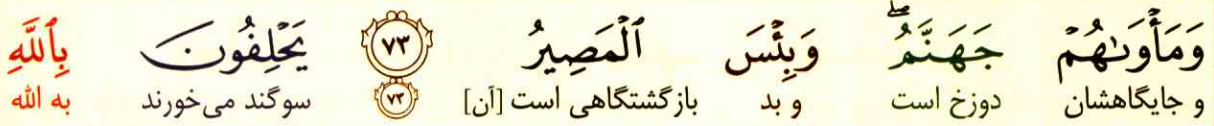 وَمَأْوَىٰهُمْ جَهَنَّمُۖ وَبِئْسَ ٱلْمَصِيرُ ٧٣ يَحْلِفُونَ بِٱللَّهِ
و جایگاهشان دوزخ است و بد بازگشتگاهی است [آن] ۷۳ سوگند می‌خورند به الله